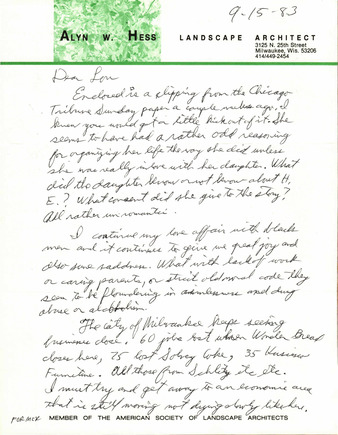 9-15-83
ALYN W. HESS LANDSCAPE ARCHITECT
3125 N. 25th Street
Milwaukee, Wis. 53206
414/449-2454
Dear Lou
Enclosed is a clipping from the Chicago
Tribune Sunday paper a couple weeks ago. I
knew you would get a little kick out of it. She
seems to have had a rather odd reasoning
for organizing her life the way she did unless
she was really in love with her daughter. What
did the daughter know or not know about H.
E.? What consent did she give to the story?
All rather unromantic.
I continue my love affair with black
men and it continues to give me great joy and
also some sadness. What with lack of work
or caring parents, or strict old moral code they
seem to be floundering in aimlessness and drug
abuse or alcoholism.
The City of Milwaukee keeps seeing
business close. 60 jobs lost when Wonder Bread
closes here, 75 lost Solvay Coke, 35
Furniture. All those from Schlitz etc etc.
I must try and get away to an economic area
that is still moving not dying slowly like here.
FORMER MEMBER OF THE AMERICAN SOCIETY OF LANDSCAPE ARCHITECTS